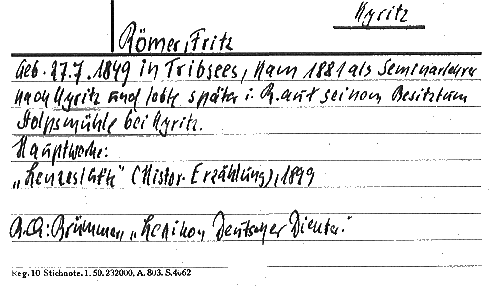 Kyritz
Römer, Fritz
Geb. 27.7.1849 in Tribsees, kam 1881 als Seminarlehrer
nach Kyritz und lebte später i. R. auf seinem Besitztum
Stolpsmühle bei Kyritz.
Hauptwerke:
(Histor. Erzählung), 1899
Brümmer, „Lexikon Deutscher Dichter."
Reg. 10 Stichnote. 1. 50. 232000. A. 803. S. 4062